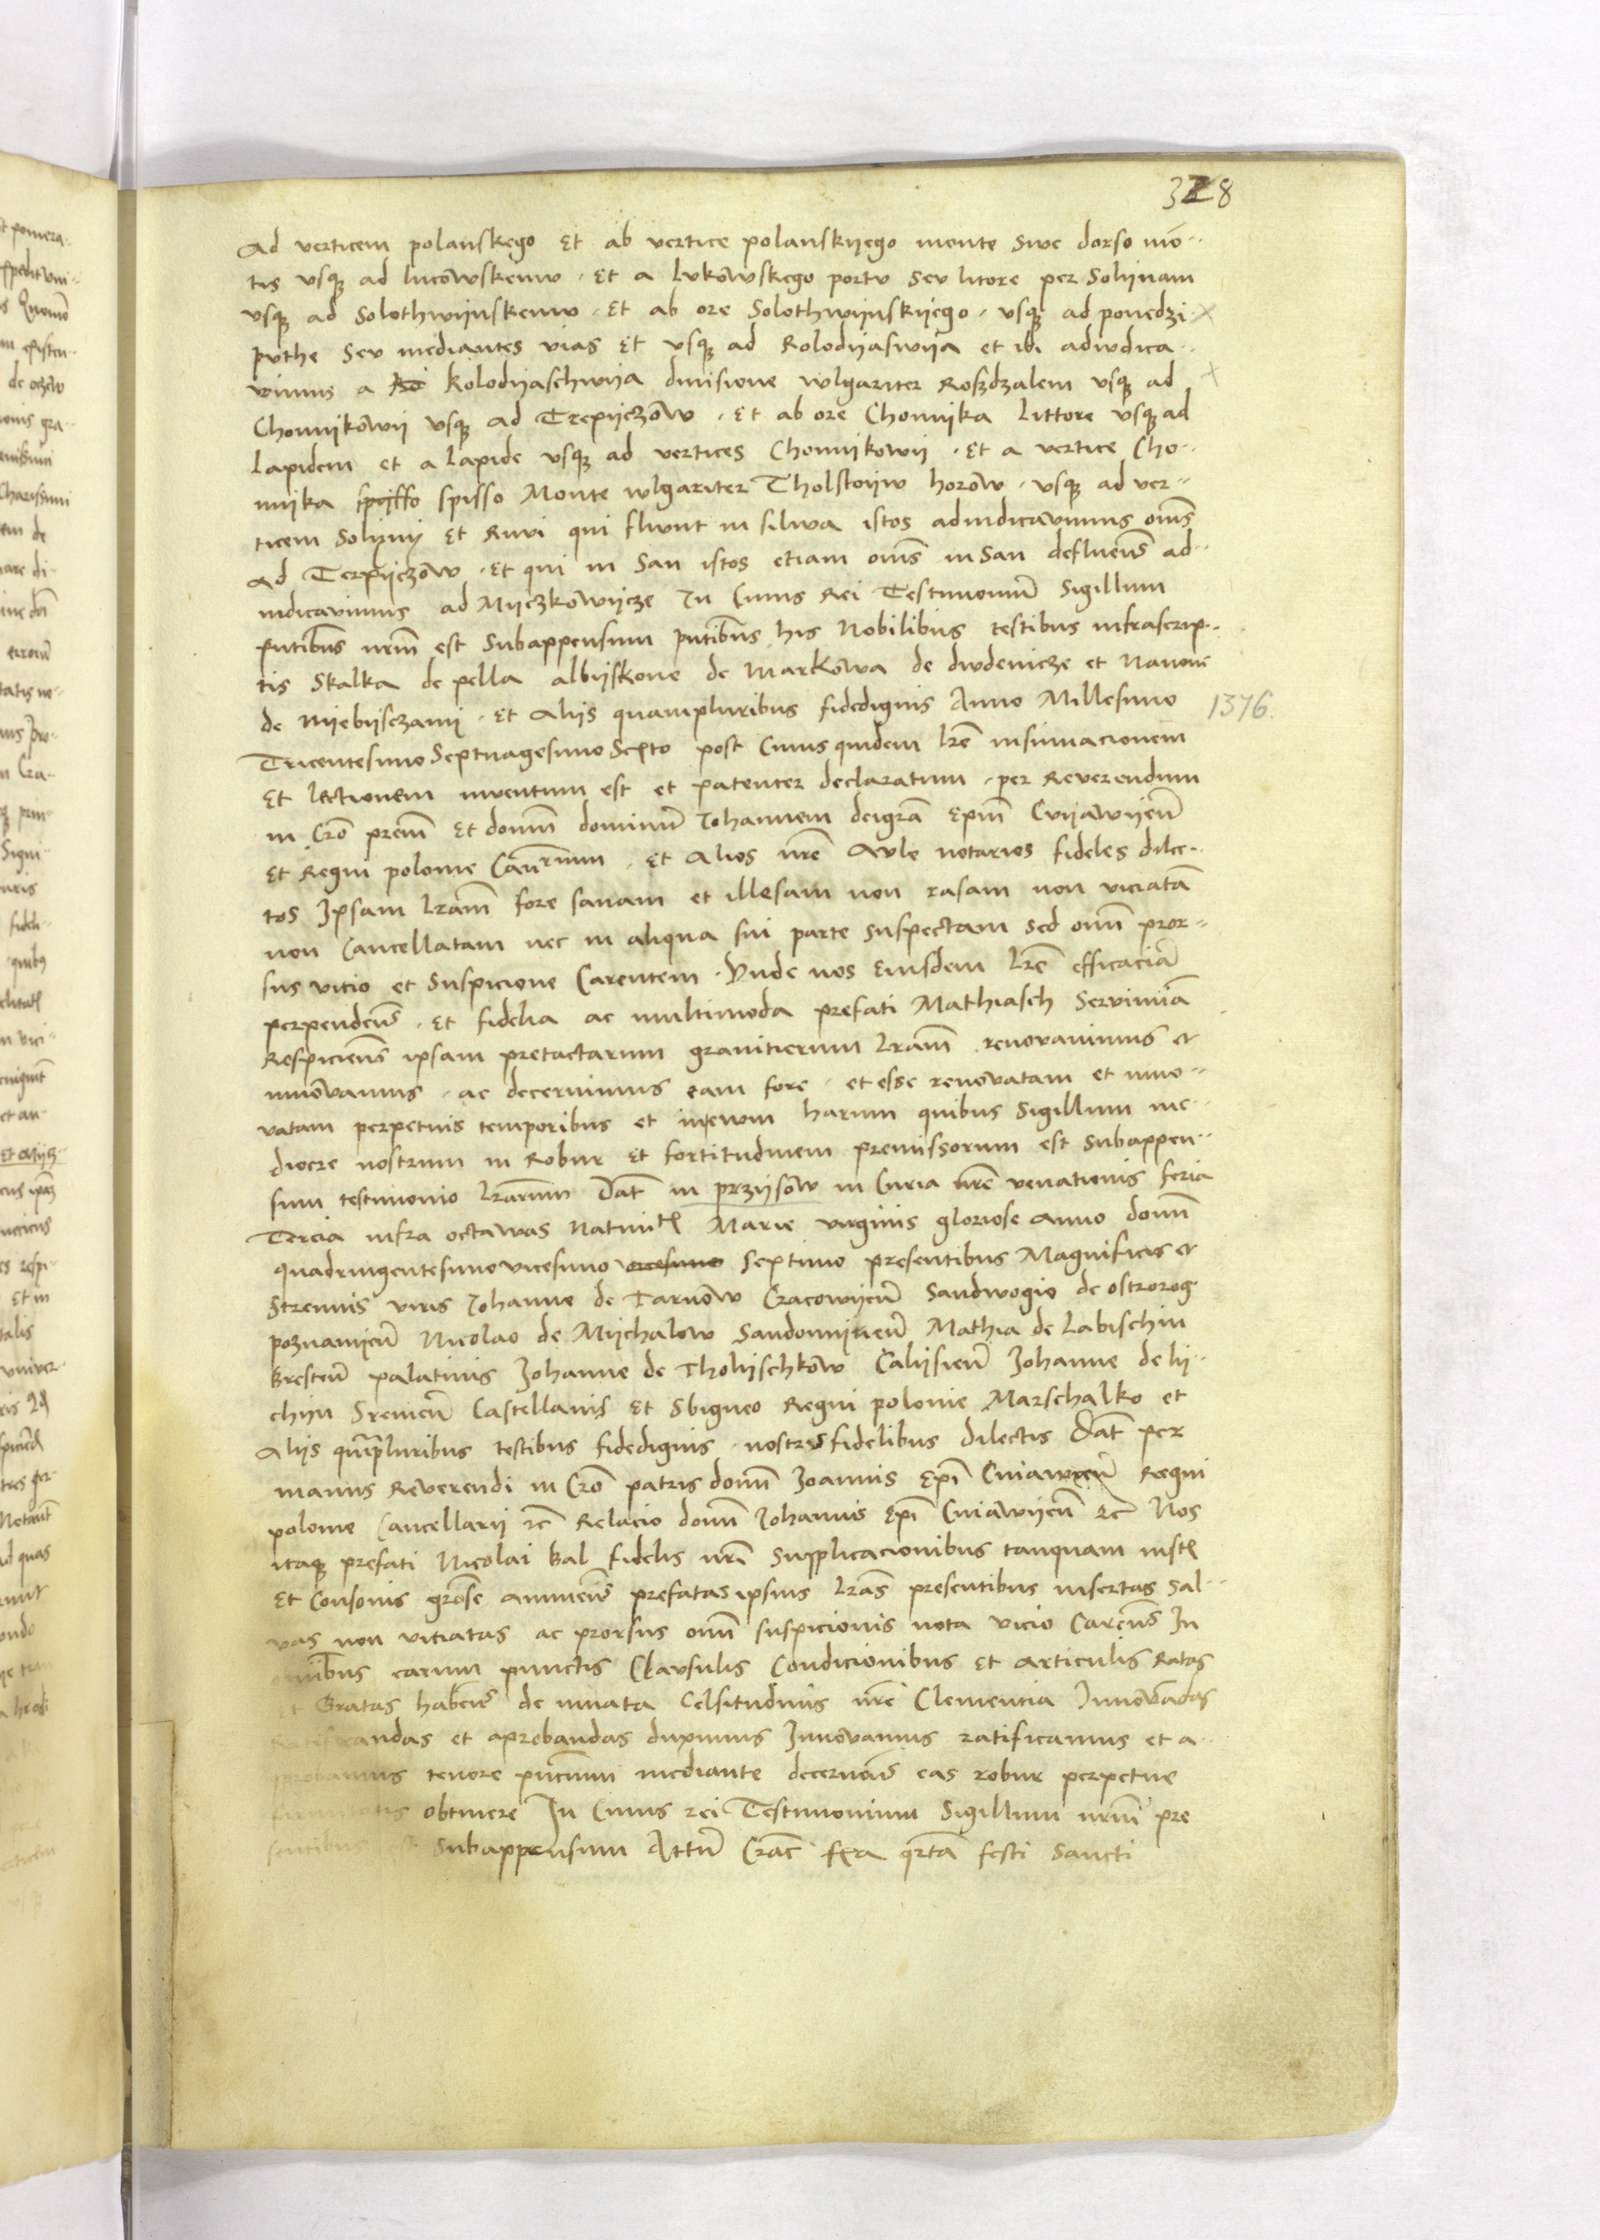 328
Ad verticem polanskego Et ab vertice polanskyego monte Siwe dorso mō¨
tis vsqꝫ ad lucowskemw · Et a Lvkowskego portv Sev litore per Solijnam
vsqꝫ ad Solothwijnskemw · Et ab ore Solothwijnskijego · vsqꝫ ad ponedzi
pvthe Sev mediantes vias Et vsqꝫ ad Kolodijaswija et ibi adiudica¨
vimus a Kolodijaschwija divisione wlgariter Roszdzalem vsqꝫ ad
Chomijkowij vsqꝫ ad Trepijczow · Et ab ore Chomijka Littore vsqꝫ ad
Lapidem et a lapide vsqꝫ ad vertices Chomijkowij · Et a vertice Cho¨
mijka spijsso spisso Monte wlgariter Tholstoijw horow · vsqꝫ ad ver¨
ticem Solijnij Et Ruvi qui fluunt in silwa istos adiudicavimus om̄s
Ad Terpijczow · Et qui in San istos etiam om̄s in San defluen̄s ad¨
iudicavimus ad Mijczkowijcze In Cuius Rei Testimoniū Sigillum
pntib̄us nrm̄ est Subappensum pntib̄us his Nobilibus testibus infrascrip¨
tis Skalka de pella albijskone de Markowa de dvdenicze et Nanoni
de Nijebijsczami · Et Alijs quampluribus fidedignis Anno Millesimo
1376.
Tricentesimo Septuagesimo Sexto post Cuius quidem lrē insinuacionem
Et lectionem inventum est et patenter declaratum · per Reverendum
in Cr̄o prem̄ Et domm̄ dominū Johannem deigrā Ep̄m Cvijawijeñ
Et Regni polonie Canr̄ium · Et Alios nrē Avle notarios fideles dilec¨
tos Ipsam lrām fore sanam et illesam non rasam non viciatā
non Cancellatam nec in aliqua sui parte suspectam sed omnī pror¨
sus vicio et Suspicione Carentem · Vnde nos Eiusdem lrē efficaciā
perpenden̄s · Et fidelia ac multimoda prefati Mathiasch Servimīa
Respicien̄s ipsam pretactarum granitierum lrām renovavimus et
innovamus · ac decernimus eam fore · et esse renovatam et inno¨
vatam perpetuis temporibus et inevum harum quibus Sigillum me¨
diocre nostrum in Robur Et fortitudinem premissorum est Subappen¨
sum testimonio lrārum Dat̄ in przijsow in Curia nrē venationis feria
Tercia infra octawas Nativitꝭ Marie virginis gloriose anno domī
quadringentesimo vicesimo vicesimo Septimo presentibus Magnificis et
Strenuis viris Johanne de Tarnow Cracowijeñ Sandwogio de ostrorog
poznamijeñ Nicolao de Mijchalow Sandomijrieñ Mathia de Labischin
Bresteñ palatinis Johanne de Tholijschkow Calijsieñ Johanne de lij¨
chijn Sremeñ Castellanis Et Sbigneo Regni polonie Marschalko et
Alijs qm̄pluribus testibus fidedignis · nostris fidelibus dilectis Dat̄ per
manus Reverendi in Cr̄o patris domī Joannis Ep̄i Cuiawien̄ Regni
polonie Cancellarij rc̄ Relacio domī Johannis Ep̄i Cuiawijeñ rc̄ Nos
itaqꝫ prefati Nicolai Bal fidelis nrī Supplicacionibus tanquam iustꝭ
Et Consonis grōse annuen̄s prefatas ipsius lrās presentibus insertas Sal¨
vas non vitiatas ac prorsus omnī suspicionis nota vicio Caren̄s In
omnib̄us earum punctis Clavsulis Condicionibus Et articulis Ratas
Et Gratas haben̄s de innata Celsitudinis nrē Clementia Innovandas
Ratificandas et aprobandas duximus Innovamus ratificamus et a¨
probamus tenore pn̄cium mediante decernen̄s eas robur perpetue
firmitatis obtinere In Cuius rei Testimonium Sigillum nrūm pre
sentibus est Subappensum Attū Crac̄ fxa qrtā festi Sancti